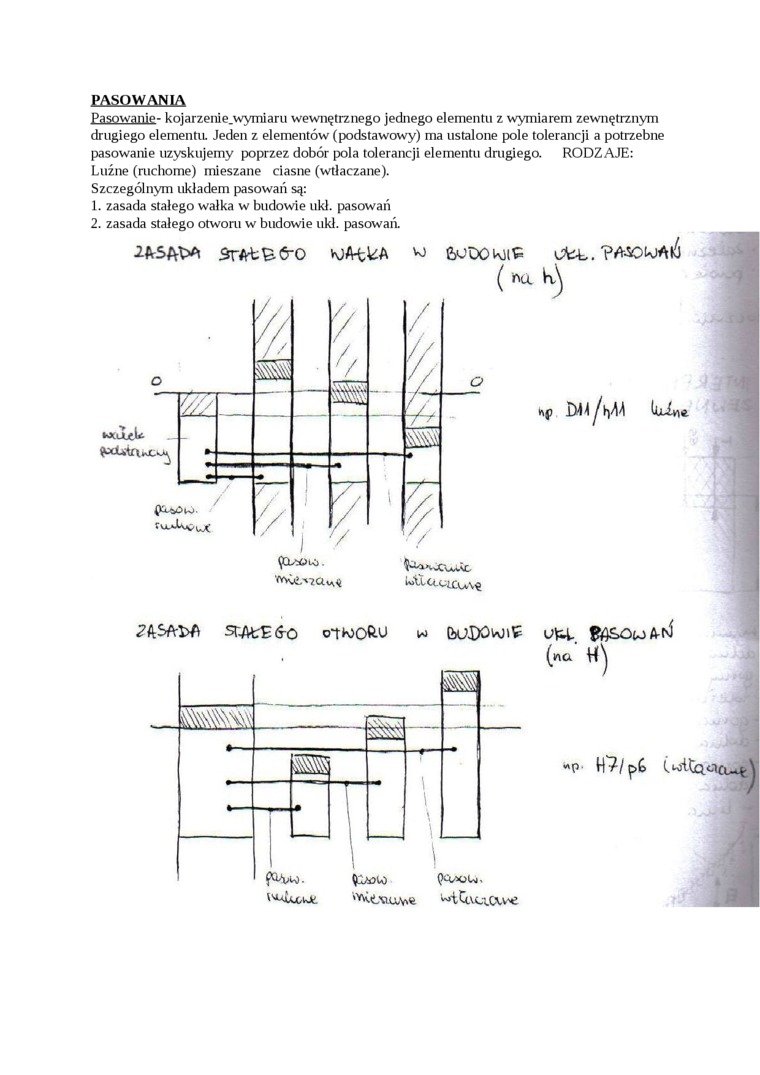 PASOWANIA
Pasowanie- kojarzenie wymiaru wewnętrznego jednego elementu z wymiarem zewnętrznym
drugiego elementu. Jeden z elementów (podstawowy) ma ustalone pole tolerancji a potrzebne
pasowanie uzyskujemy poprzez dobór pola tolerancji elementu drugiego. RODZAJE:
Luźne (ruchome) mieszane ciasne (wtłaczane).
Szczególnym układem pasowań są:
1. zasada stałego wałka w budowie ukł. pasowań
2. zasada stałego otworu w budowie ukł. pasowań.
ZASADA STAŁEGO WAŁKA W BUDOWIE UKŁ. PASOWAŃ
(na h)
0 0
np. D11/h11 luźne
wałek
podstawowy
pasow.
ruchowe
pasow.
mieszane
pasowanie
wtłaczane
ZASADA STAŁEGO OTWORU W BUDOWIE UKŁ. PASOWAŃ
(na H)
np. H7/p6 (wtłaczane)
pasow. pasow. pasow.
ruchowe mieszane wtłaczane